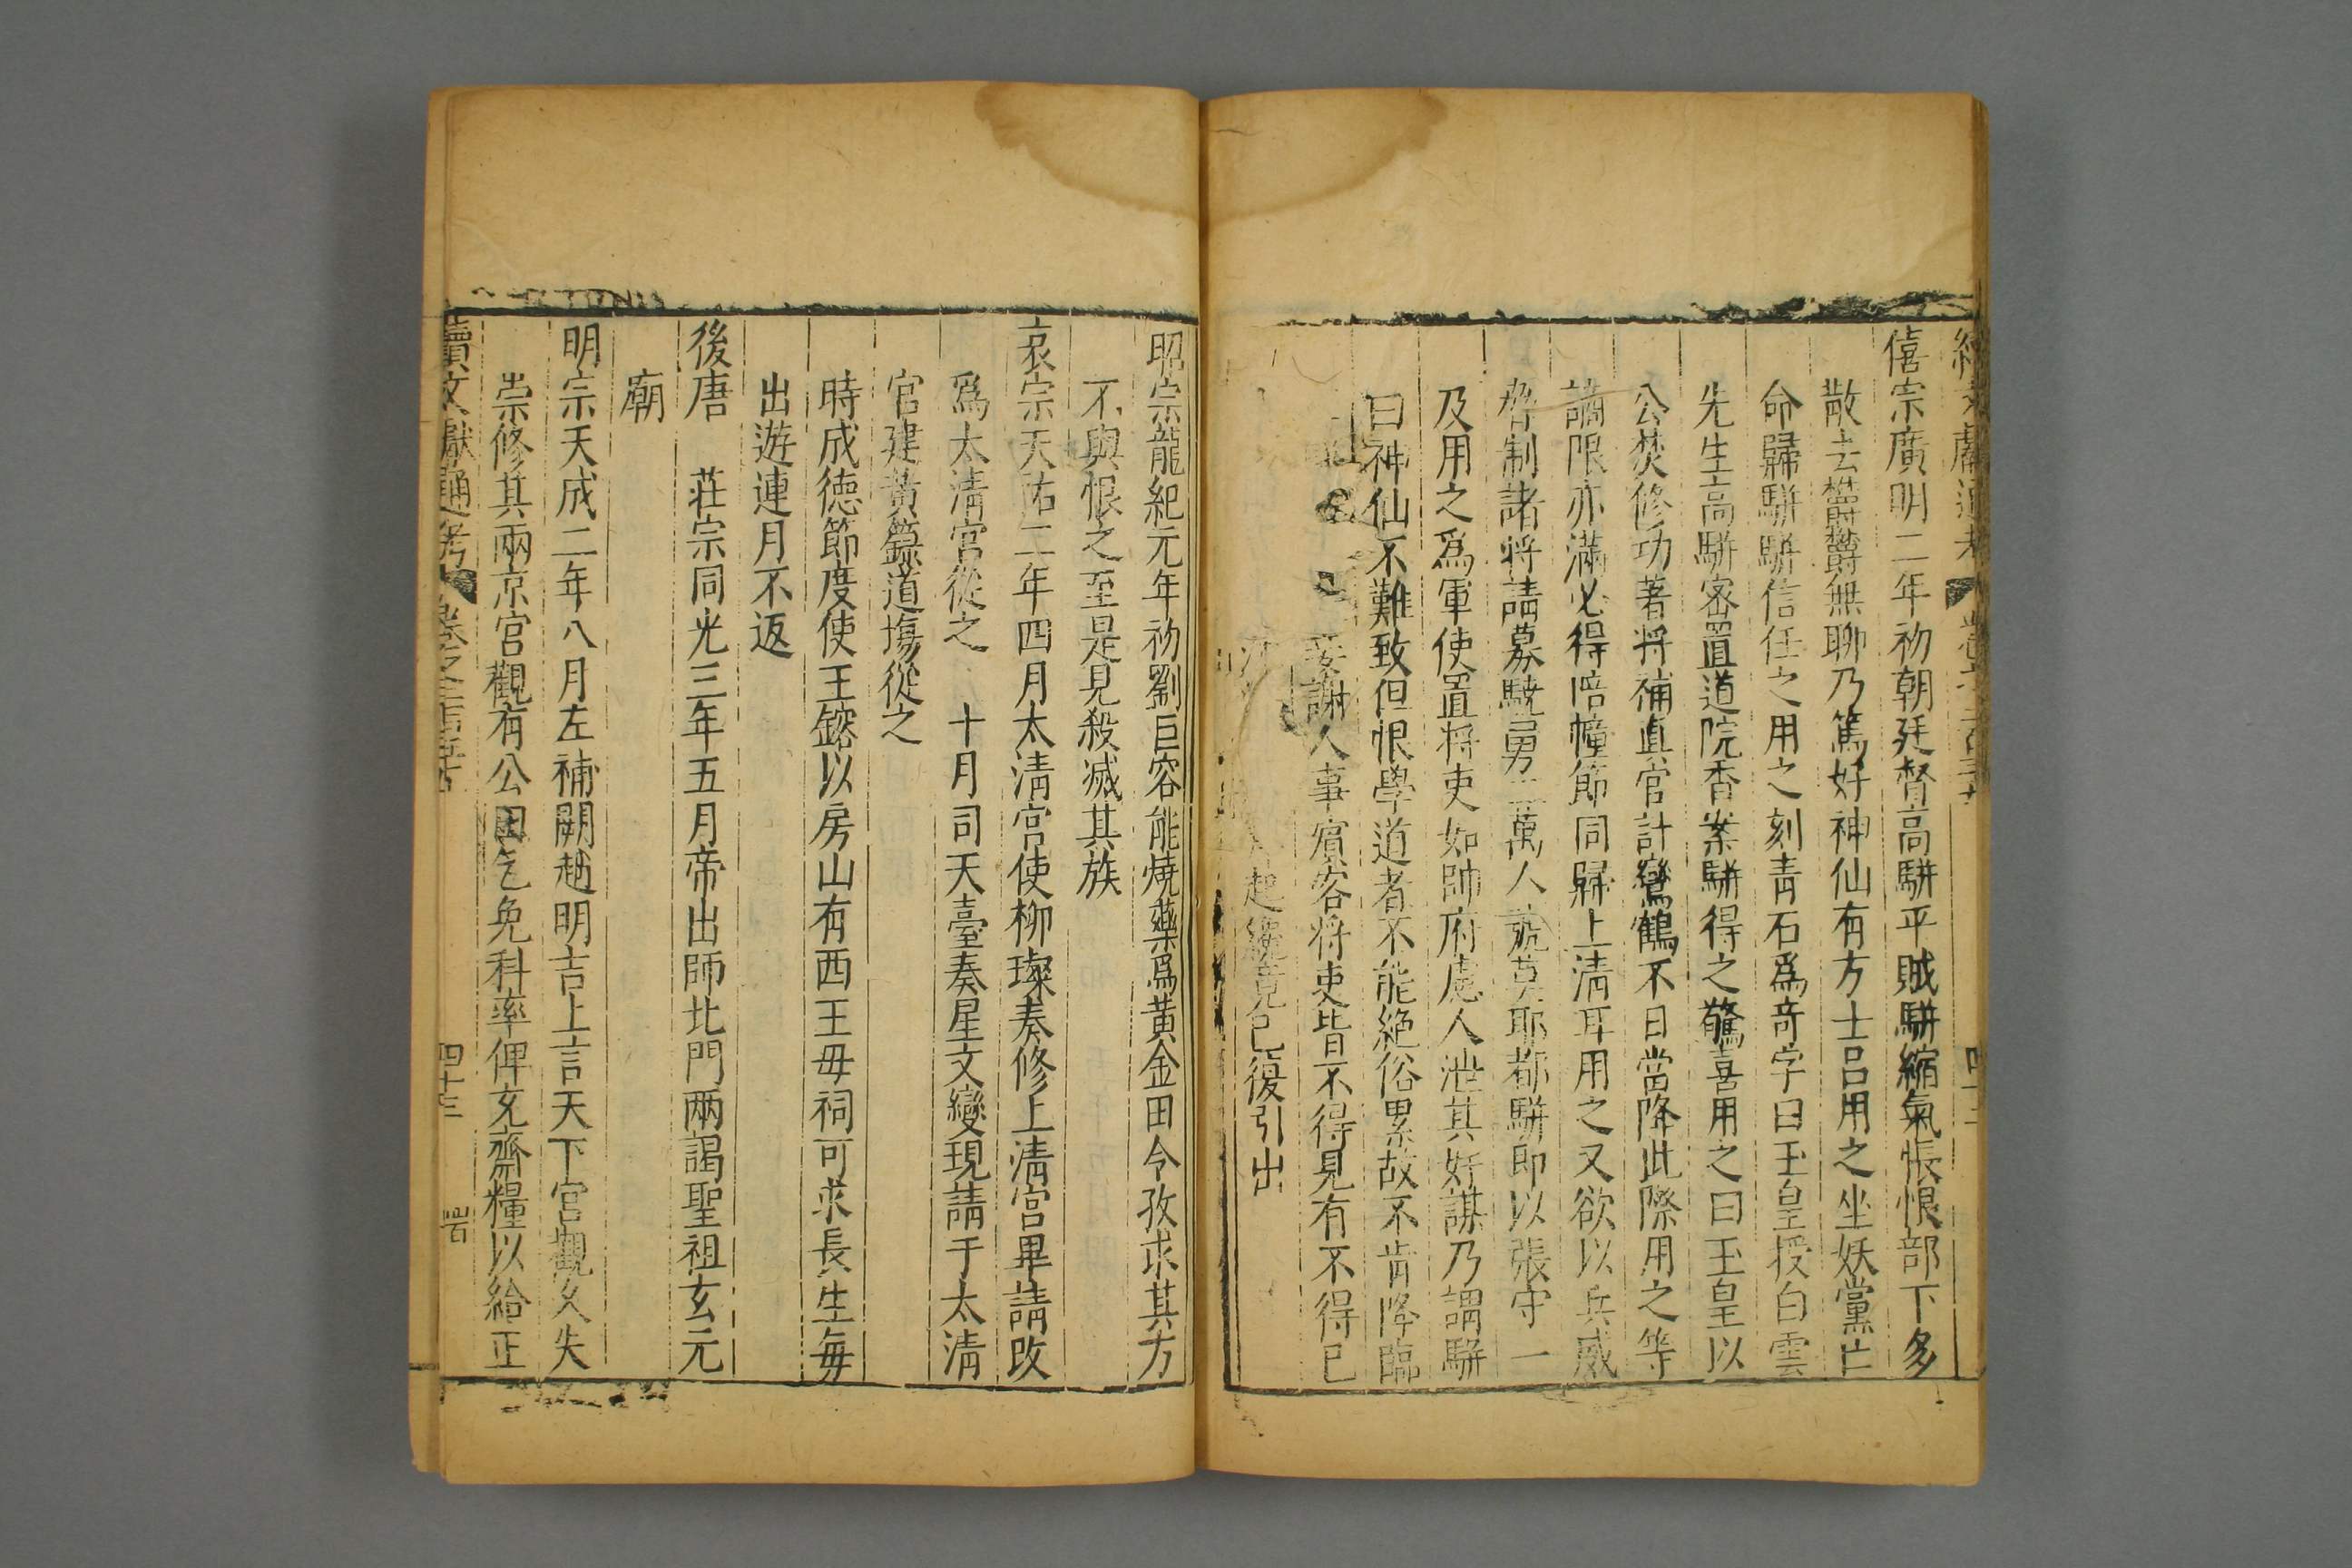 僖宗廣明二年初朝廷督高駢平賊駢縮氣悵恨部下多
散去欝欝無聊乃篤好神仙有方士呂用之坐妖黨亡
命歸駢駢信任之用之刻青石爲竒字曰玉皇授白雲
先生高駢密置道院香案駢得之驚喜用之曰玉皇以
公焚修功著將補眞官計鸞鶴不日當降此際用之等
謫限亦滿必得陪幢節同歸上淸耳用之又欲以兵威
脅制諸將請募驍勇二萬人號莫耶都駢即以張守一
及用之爲軍使置將吏如帥府慮人泄其奸謀乃謂駢
曰神仙不難致但恨學道者不能絶俗累故不肯降臨
妾謝人事賓客將吏皆不得見有不得已
起纔竟已復引出
昭宗龍紀元年初劉巨容能燒藥爲黃金田令孜求其方
不與恨之至是見殺滅其族
哀宗天祐二年四月太淸宮使柳璨奏修上淸宮畢請改
爲太淸宮從之 十月司天臺奏星文變現請于太淸
宮建黃籙道塲從之
時成徳節度使王鎔以房山有西王母祠可求長生每
出遊連月不返
後唐 莊宗同光三年五月帝出師北門兩謁聖祖玄元
廟
明宗天成二年八月左補闕趙明吉上言天下宮觀久失
崇修其兩京宮觀有公田乞免科率俾充齋糧以給正
續文獻通考 卷之二百四十 四十三